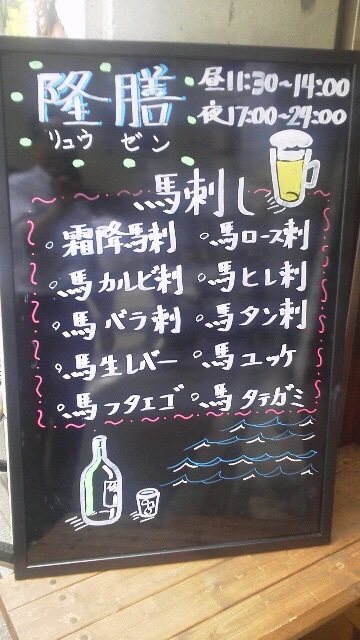 隆膳
リュウ ゼン
昼11:30~14:00
夜17:00~24:00
馬刺し
。霜降馬刺 。馬ロース刺
。馬カルビ刺 。馬ヒレ刺
。馬バラ刺 。馬タン刺
。馬生レバー 。馬ユッケ
。馬フタエゴ 。馬タテガミ